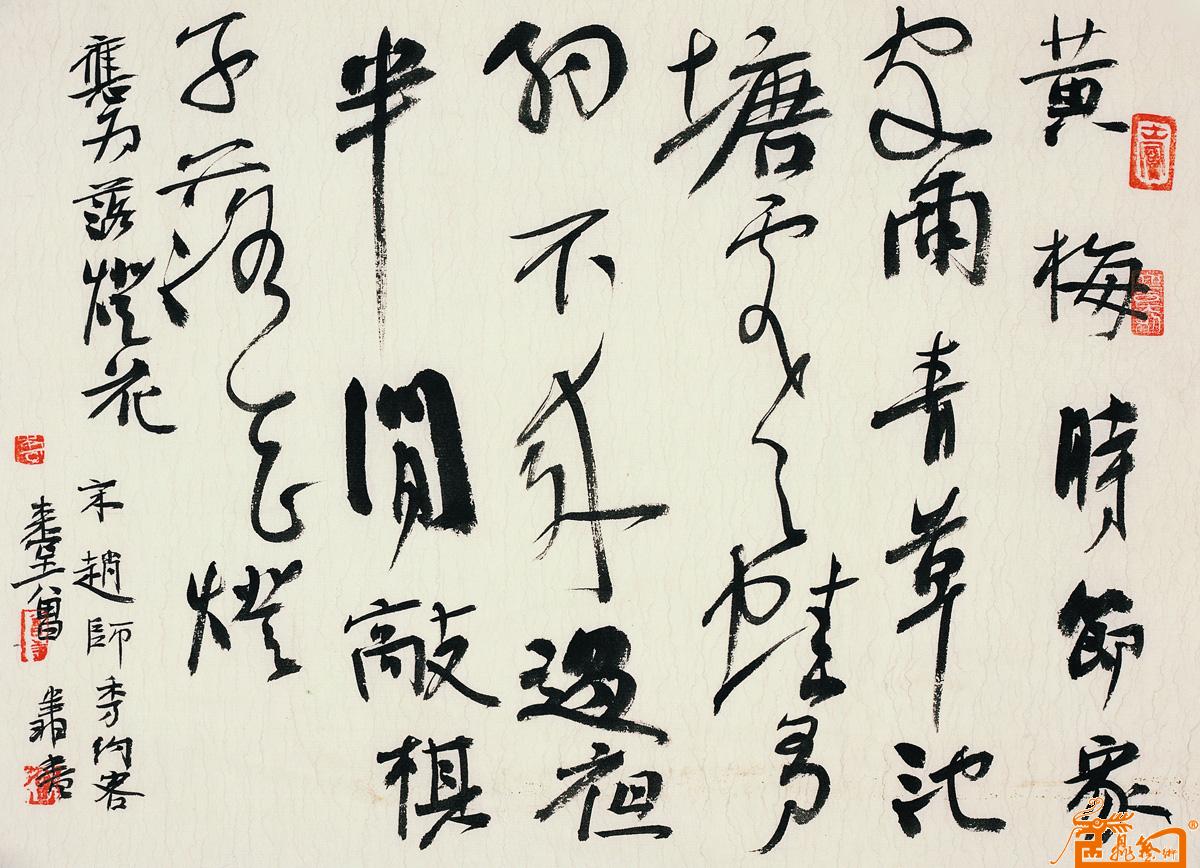 黄梅時節家
家雨青草池
塘處々蛙有
約不來過夜
半閒敲棋
子落花燈
應为落燈花
宋趙師秀約客
書